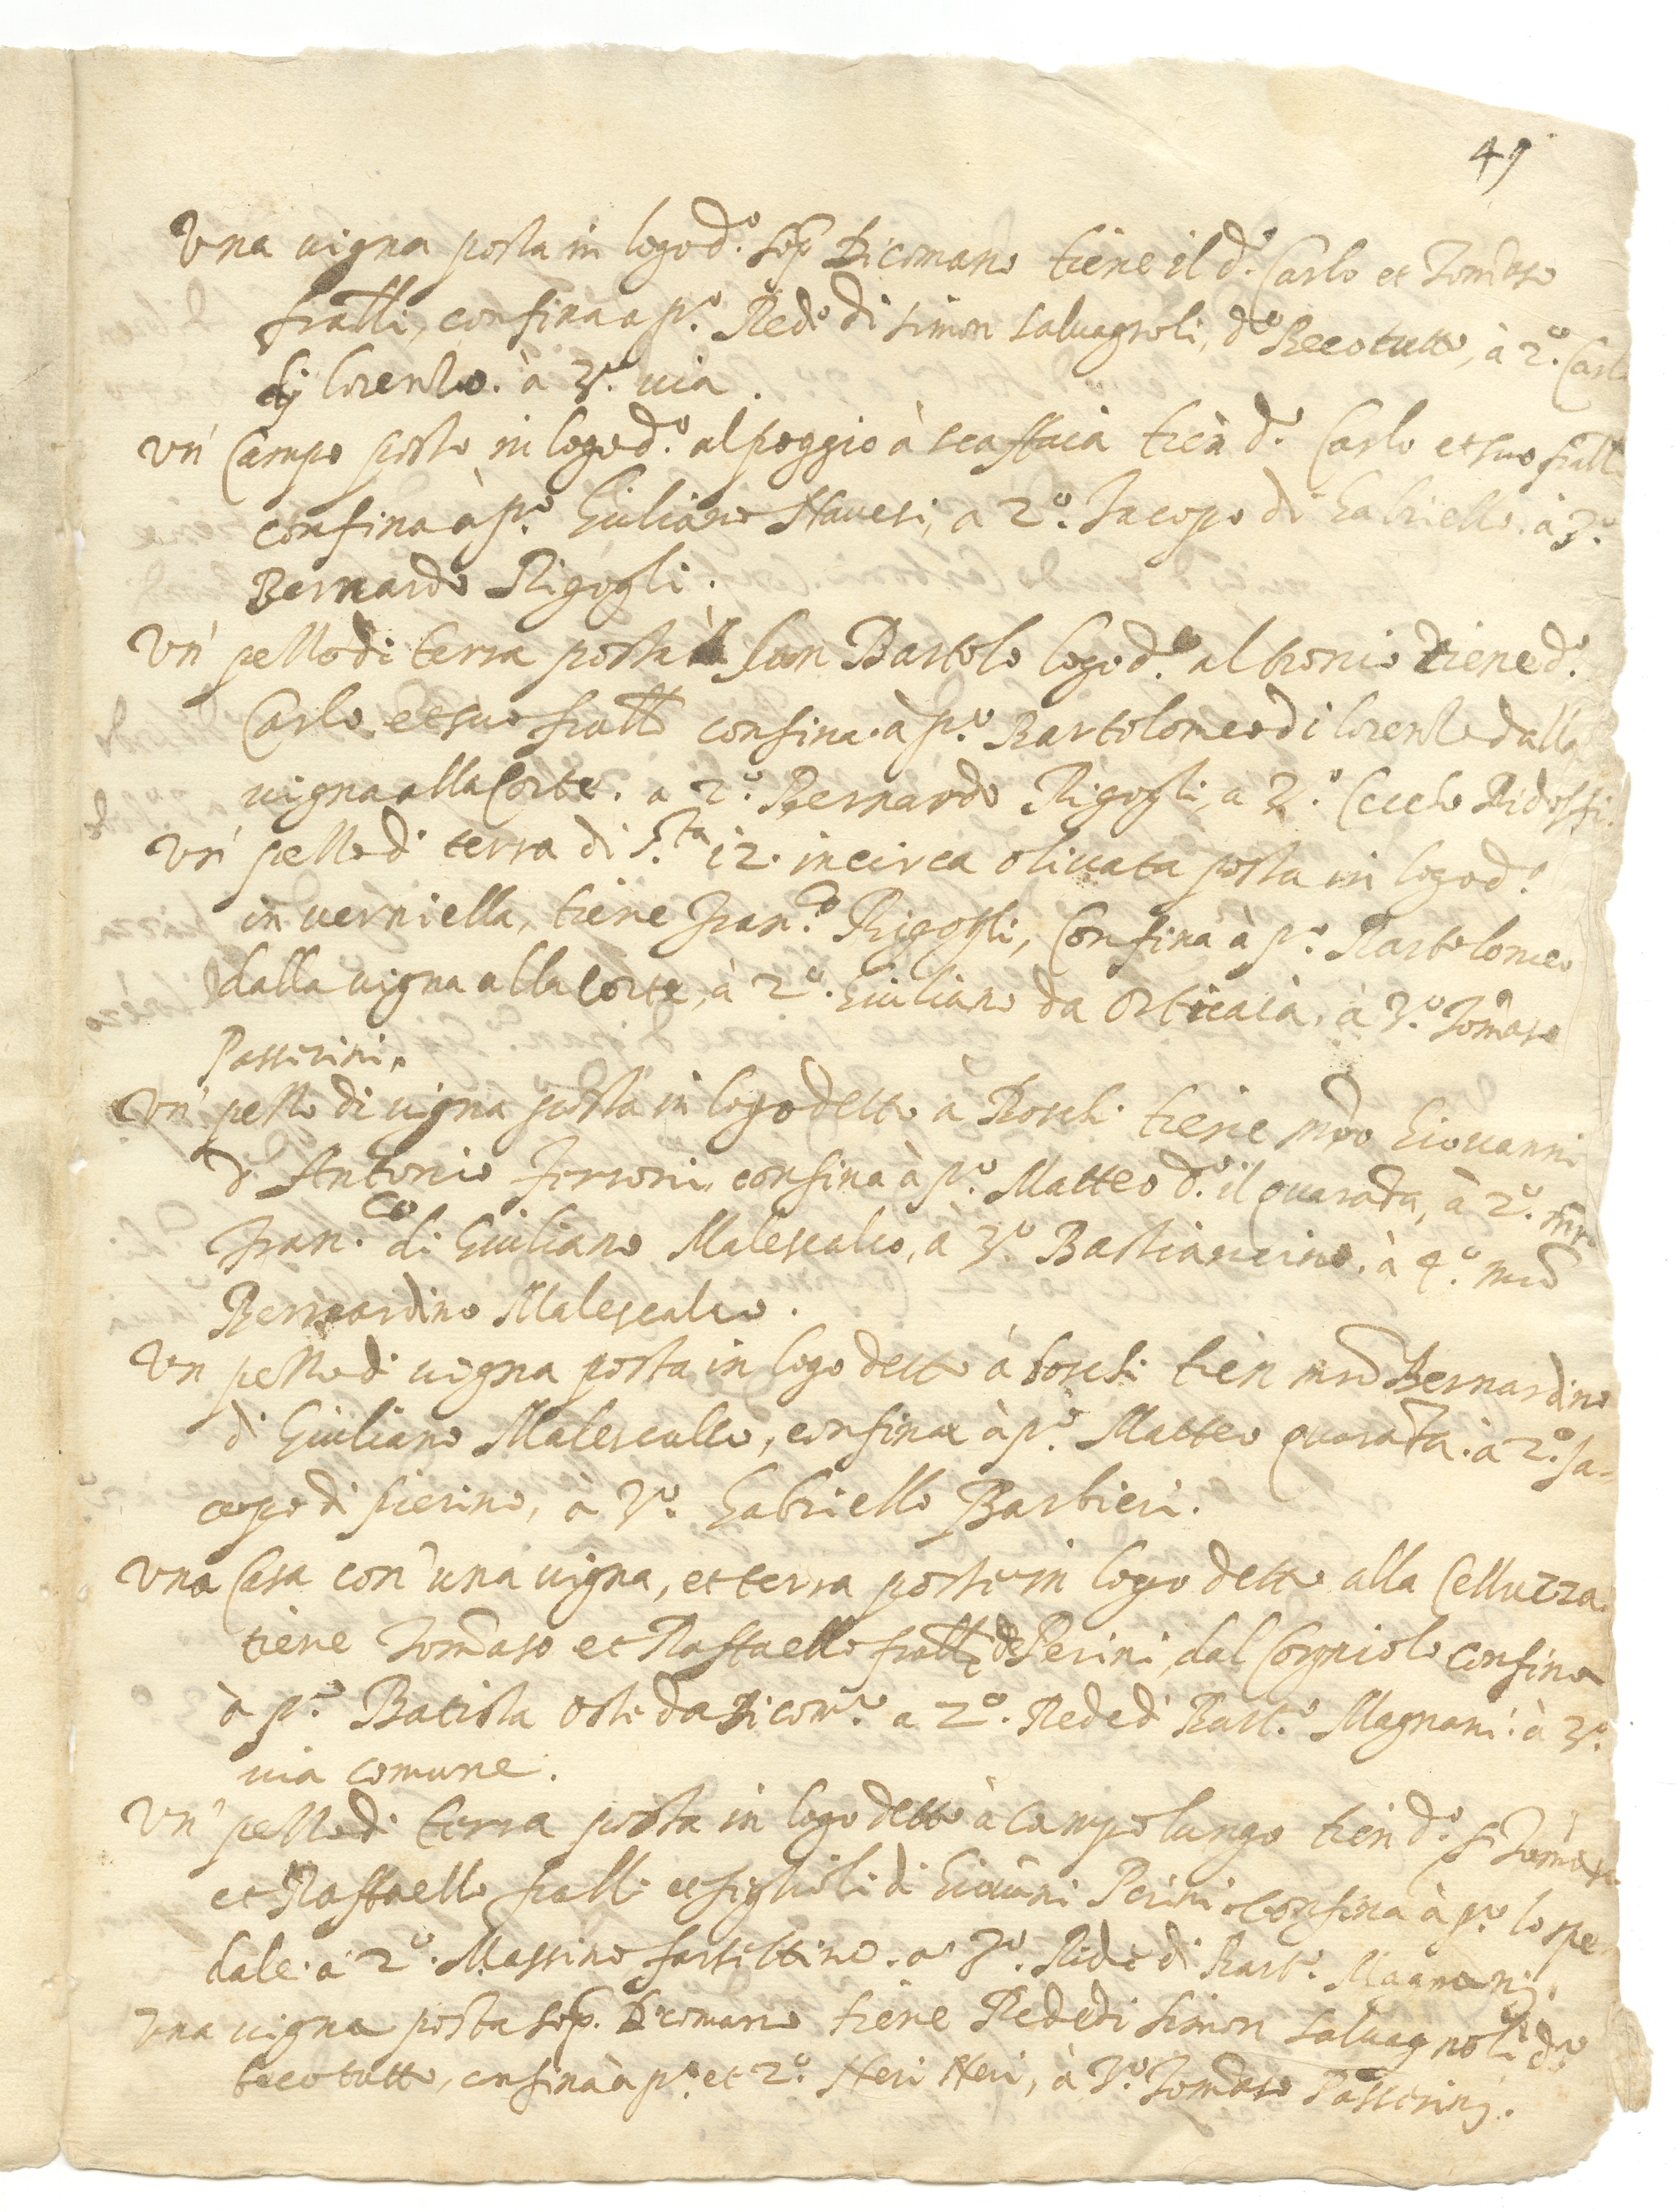 49
Una uigna posta in logo d.º sop.ª Dicomano tiene il d.º Carlo et Tomaso
fratlli, confina a p.º Rede di simon saluagnoli, d.º Becotutto, à 2.º Carlo
dj lorenzo. à 3.º uia.
Un' Campo posto in logo d.º al poggio à scaffaia tien d.º Carlo et suo fratll
confina à p.º Giuliano Nauesi, a 2.º Jacopo di Gabriello. à 3.º
Bernardo Rigogli.
Un' pezzo di terra posta à San Bartolo logo d.º al tronio tiene d.º
Carlo et suo fratllo confina à p.º Bartolomeo di lorenzo dalla
uigna alla Corte. a 2.º Bernardo Rigogli, a 3.º Ceccho Ridolfi.
Un' pezzo di terra di s.ta 12. incirca oliuata posta in logo d.º
in uerniella, tiene Fran.co Rigogli, Confina à p.º Bartolomeo
dalla uigna alla Corte, à 2.º Giuliano da Orticaia, à 3.º Tomaso
Passerini.
Un' pezzo di uigna posta in logo detto à Boschi tiene mro Giouanni
d' Antonio Ferroni, confina à p.º Matteo d.º il quarada, à 2.º mr.
Fran.co di Giuliano Malescalco, à 3.º Bastiancino. à 4.º mrō
Bernardino Malescalco.
Un pezzo di uigna posta in logo detto à boschi tien mrō Bernardino
di Giuliano Malescalco, confina à p.º Matteo quarada. à 2.º Ja-
copo di pierino, à 3.º Gabriello Barbieri.
Una Casa con' una uigna, et terra poste in logo detto alla Celluzza
tiene Tomaso et Raffaello fratlli de Perini, dal Corgniolo confina
à p.º Batista oste da Dicom.º a 2.º Rede di Bart.º Magnani. à 3.º
uia comune.
Un' pezzo di terra posta in logo detto à Campolungo tien d.º Tomaso
et Raffaello fratlli et figlioli di Giouāni Perini. Confina à p.º lo spe
dale. à 2.º Massino farsettino. a 3.º Rede di Bart.º Magnanj.
Una uigna posta sop.ª Dicomano tiene Rede di simon saluagnoli d.º
becotutto, confina à p.º et 2.º Neri Neri, à 3.º Tomaso Passerinj.